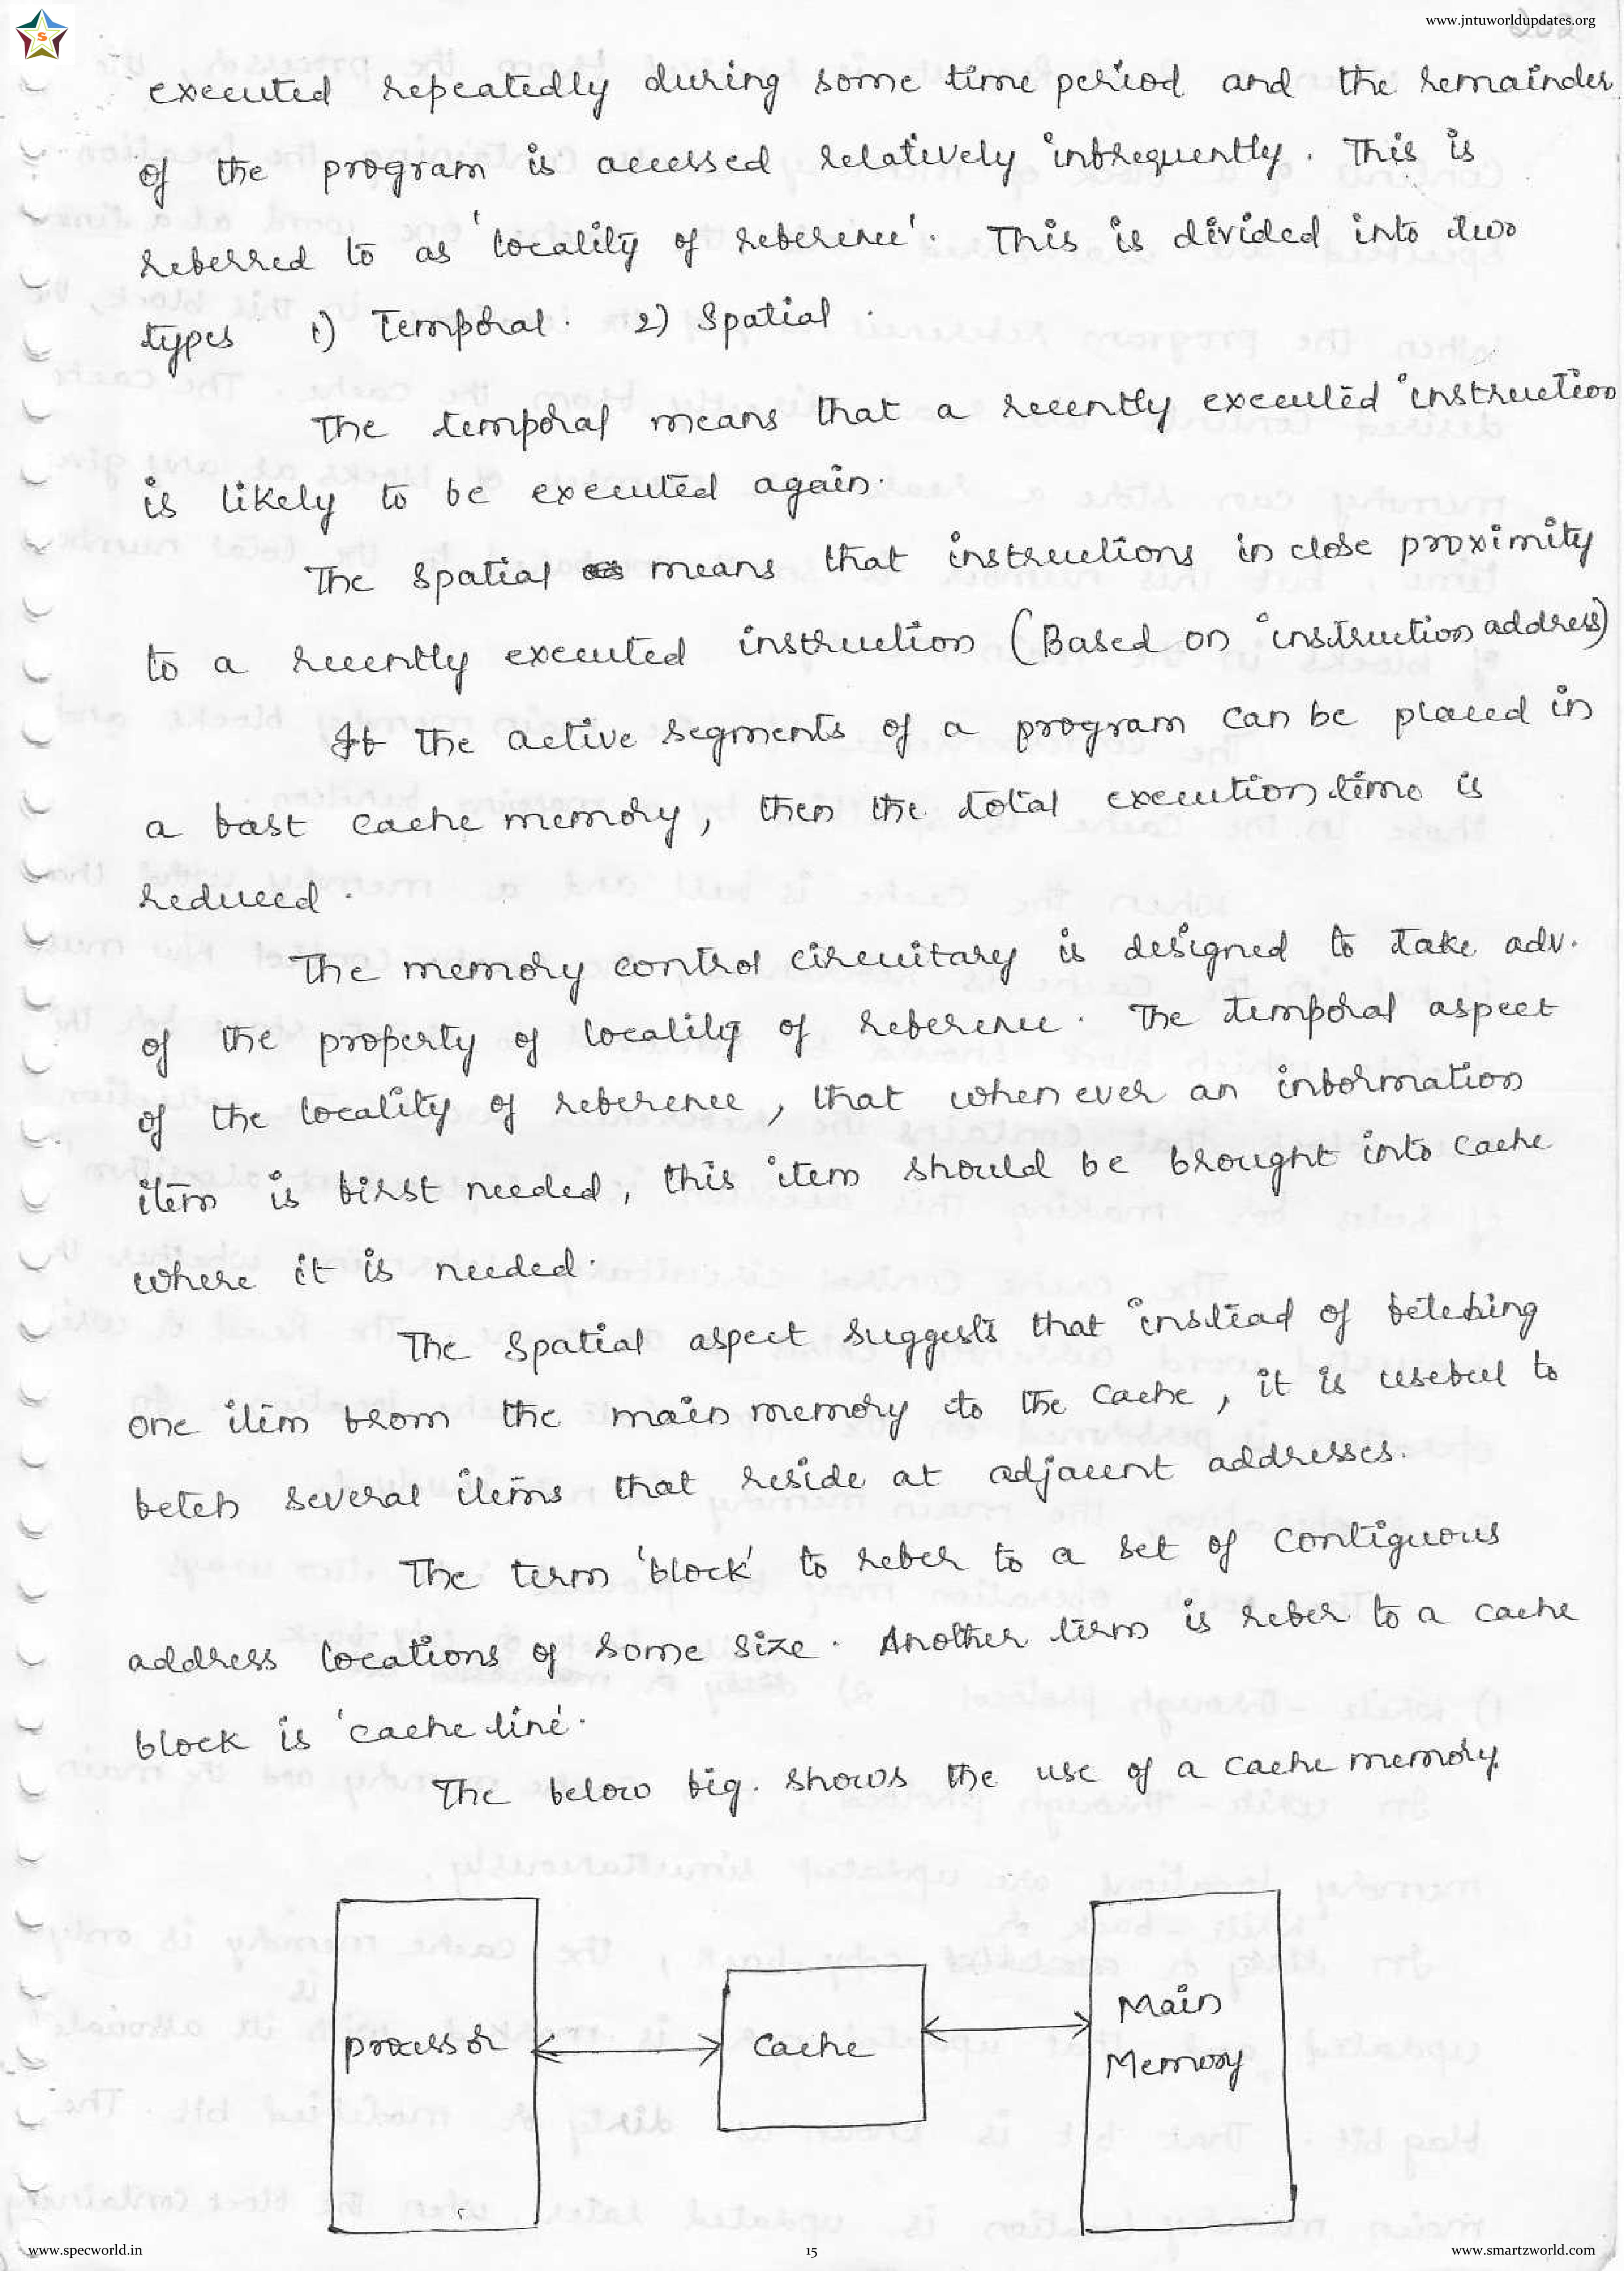 www.jntuworldupdates.org
executed repeatedly during some time period and the remainder
of the program is accessed relatively infrequently. This is
referred to as 'locality of reference'. This is divided into two
types 1) Temporal. 2) Spatial.
The temporal means that a recently executed instruction
is likely to be executed again.
The spatial means that instructions in close proximity
to a recently executed instruction (Based on instruction address)
If the active segments of a program can be placed in
a fast cache memory, then the total execution time is
reduced.
The memory control circuitary is designed to take adv.
of the property of locality of reference. The temporal aspect
of the locality of reference, that when ever an information
item is first needed, this item should be brought into cache
where it is needed.
The spatial aspect suggests that instead of fetching
one item from the main memory to the cache, it is useful to
fetch several items that reside at adjacent addresses.
The term 'block' to refer to a set of contiguous
address locations of some size. Another term is refer to a cache
block is 'cache line'.
The below fig. shows the use of a cache memory.
processor
Cache
Main
Memory
www.specworld.in
15
www.smartzworld.com